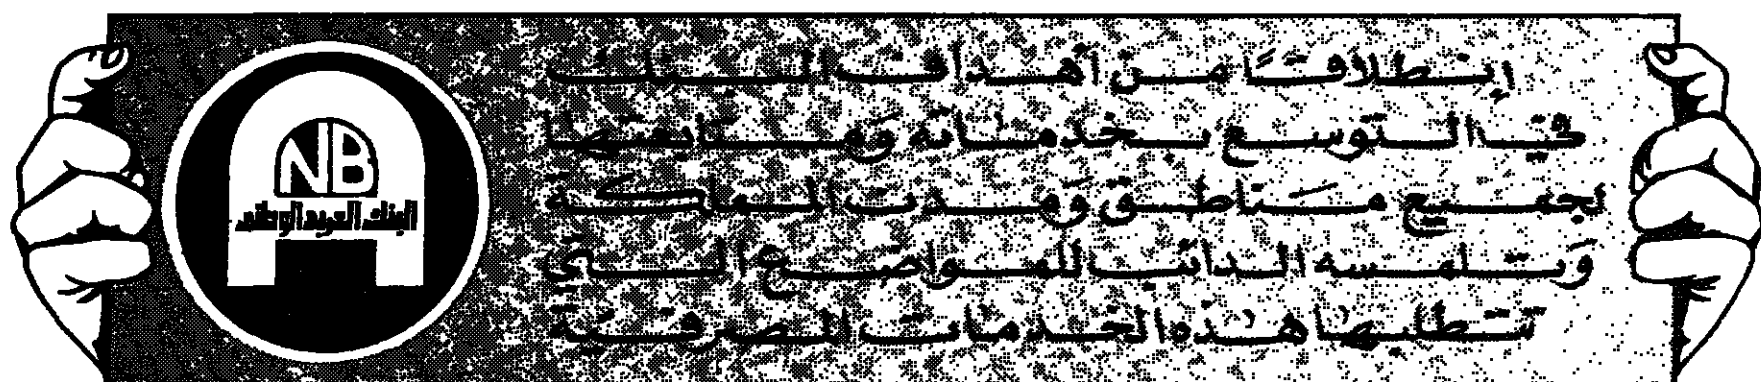 NB
البنك العربي الوطني
إنطلاقًا من أهداف البنك
في التوسع بخدماته وَمتابعتها
لجميع مناطق وَمدن المملكة
وَتلمسه الدائب للمواضع التي
تتطلبها هذه الخدمات المصرفية